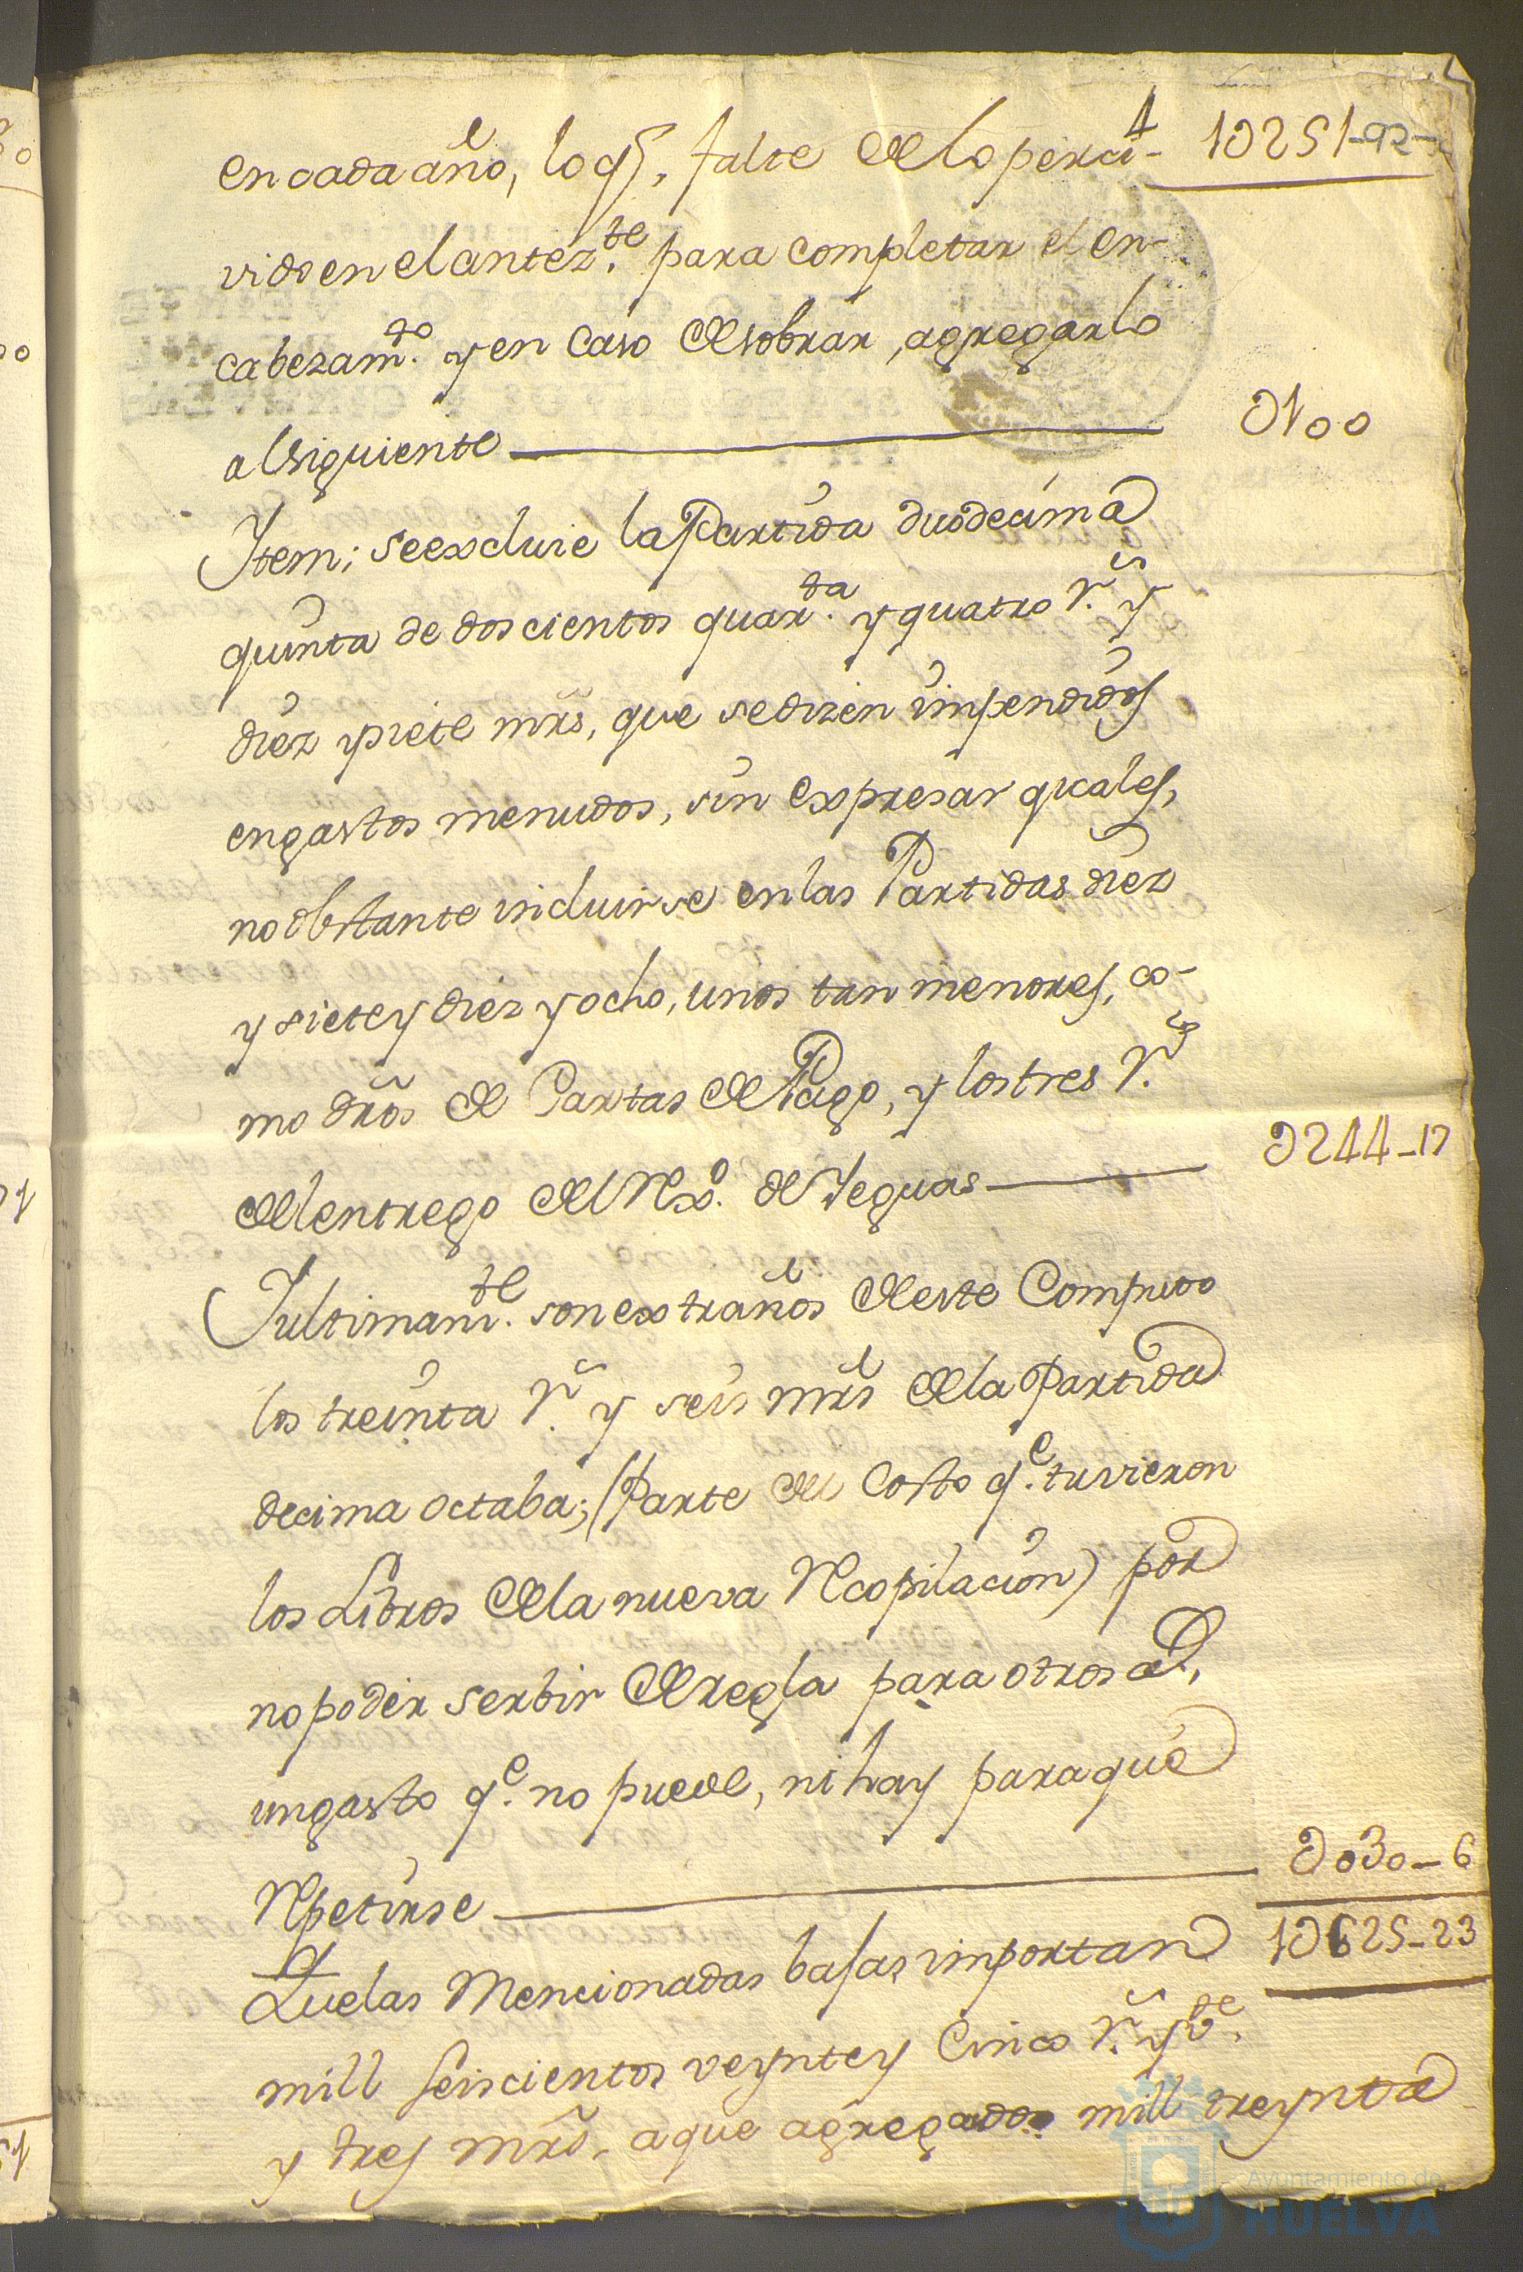 en cada año, lo q̃, falte de lo perci- 1U251-92-
vido en el antez.te para completar el en-
cabezam.to y en caso de sobrar, agregarlo
al siguiente U100
Item; se excluie la Partida duodecima
quinta de doscientos quar.ta y quatro r.s y
diez y siete mr̃s, que se dizen impendidos
en gastos menudos, sin expresar quales,
no obstante incluirse en las Partidas diez
y siete y diez y ocho, unos tan menores, co-
mo dr̃os de Cartas de Pago, y los tres r.s
del entrego del Rx.o de Yeguas U244-17
Y ultimam.te son extraños de este Computo
los treinta r.s y seis mr̃s de la Partida
decima octaba; (Parte del Costo q.e tuvieron
los Libros de la nueva Recopilacion) por
no poder serbir de regla para otros a.s,
un gasto q.e no puede, ni hay para que
Repetirse U030-6
Que las Mencionadas bajas importan 1U625-23
mill seiscientos veynte y Cinco r.s y v.te
y tres mr̃s, a que agregados mill treynta
Ayuntamiento de
HUELVA